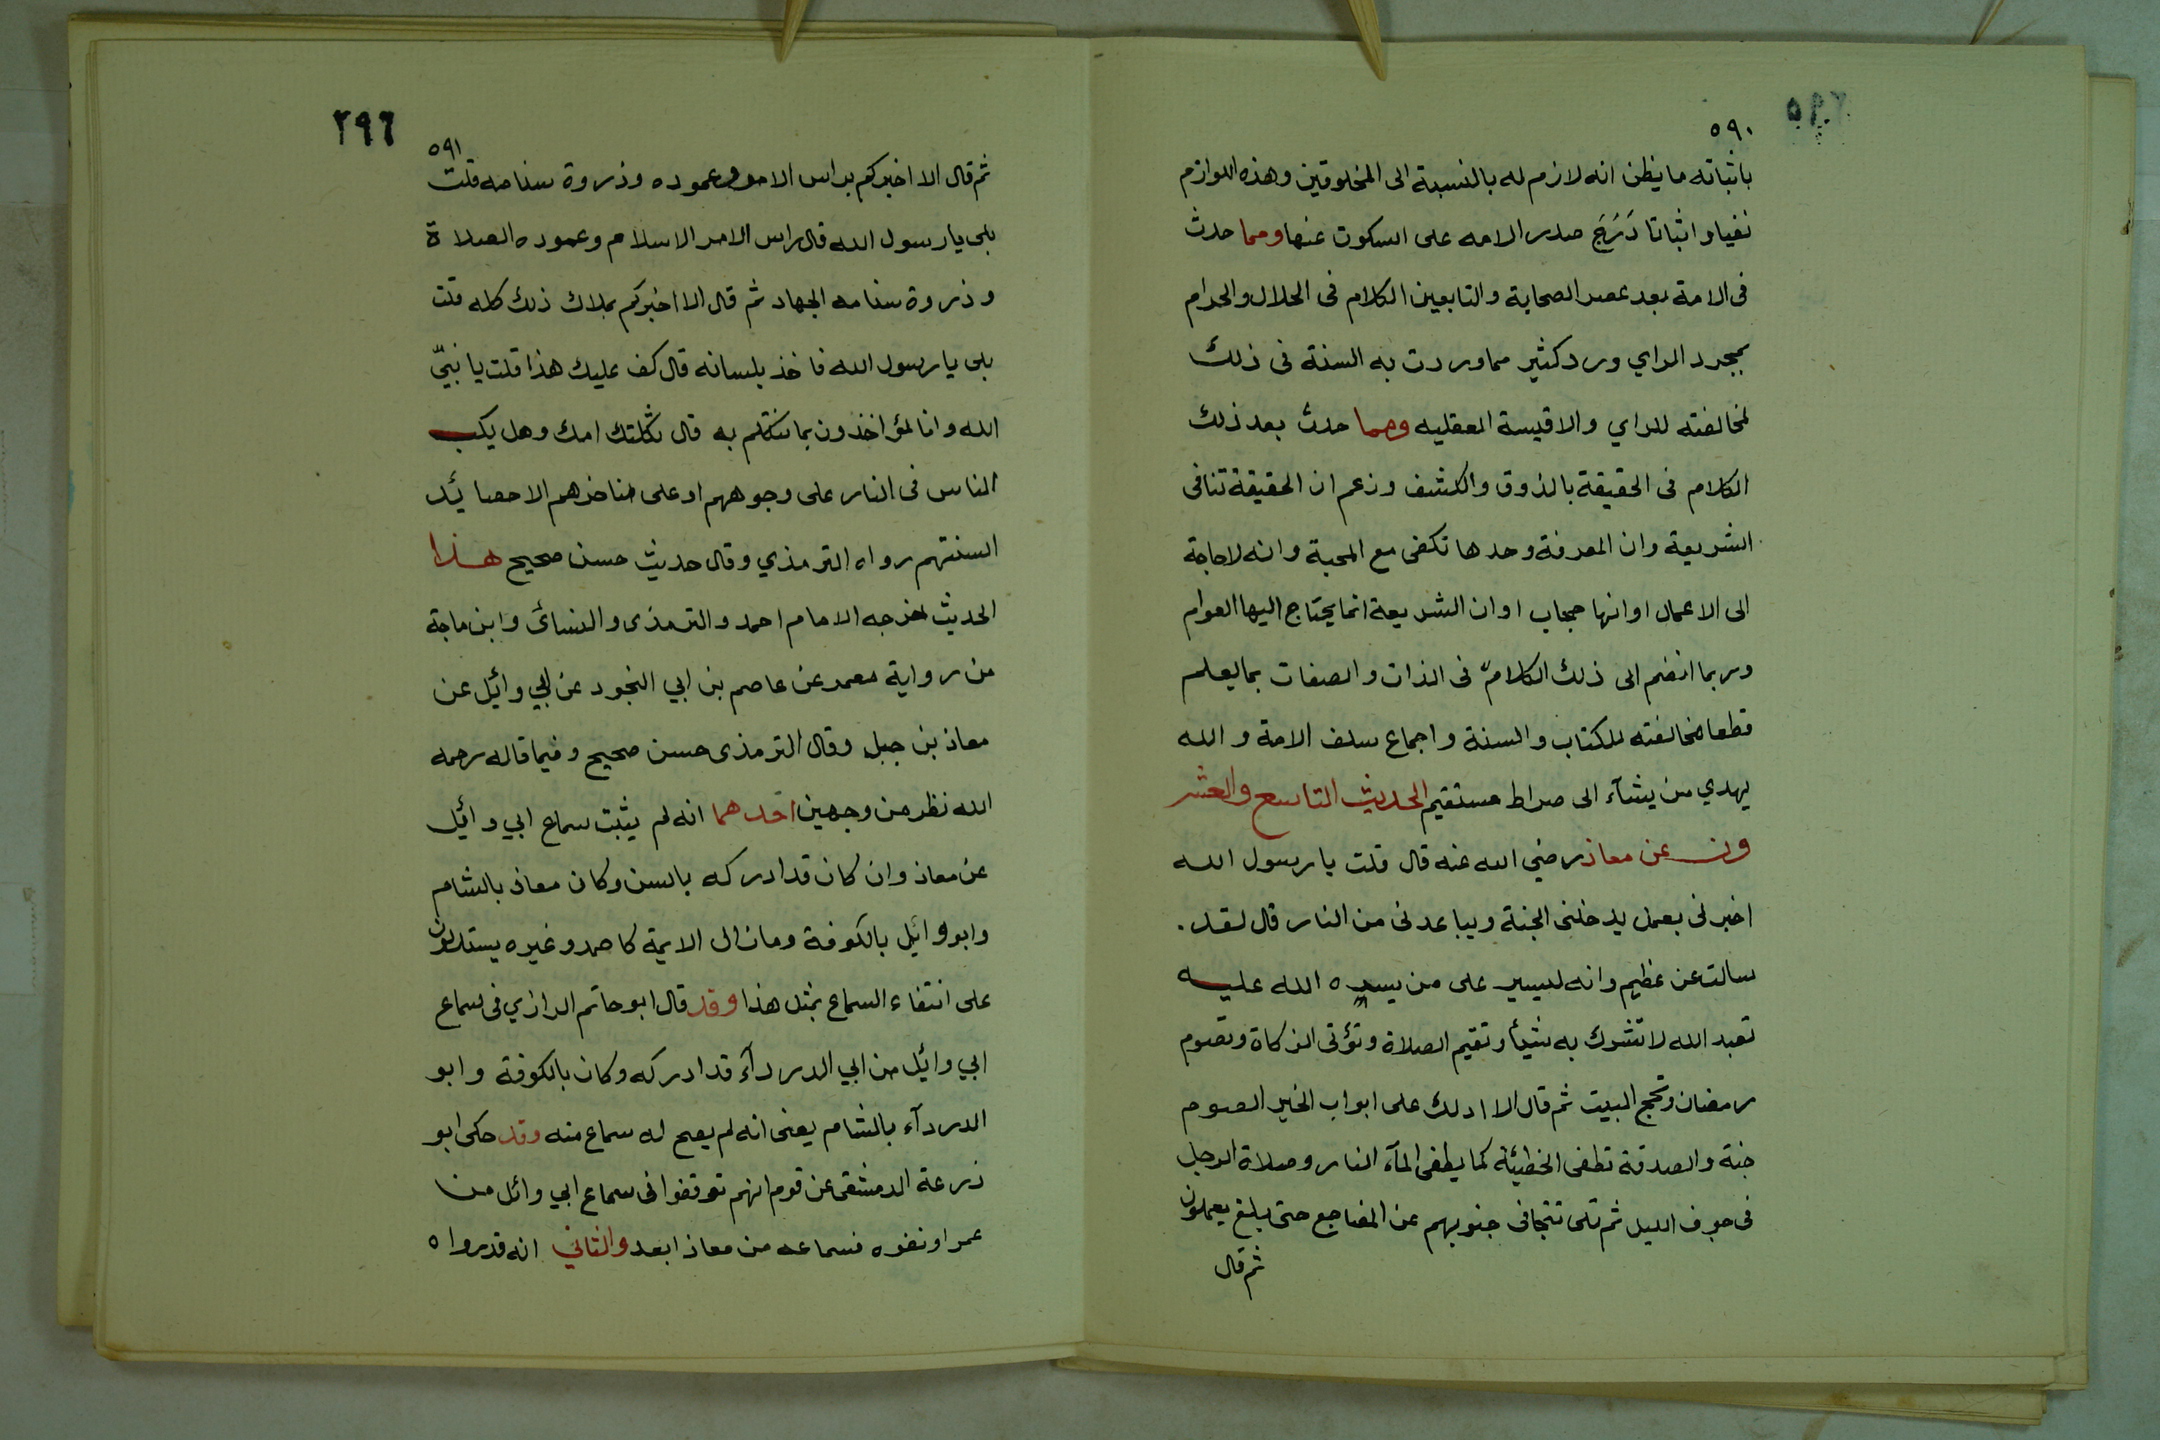 ٥٩٠
باثباته ما يظن انه لازم له بالنسبة الى المخلوقين وهذه اللوازم
نفيا واثباتا دَرَجَ صدر الامه على السكوت عنها ومما حدث
فى الامة بعد عصر الصحابة والتابعين الكلام فى الحلال والحرام
بمجرد الراي ورد كثير مما وردت به السنة فى ذلك
لمخالفته للراي والاقيسة العقليه ومما حدث بعد ذلك
الكلام فى الحقيقة بالذوق والكشف وزعم ان الحقيقة تنافى
الشريعة وان المعرفة وحدها تكفى مع المحبة وانه لاحاجة
الى الاعمال اوانها حجاب اوان الشريعة انما يحتاج اليها العوام
وربما انضم الى ذلك الكلام فى الذات والصفات بما يعلم
قطعا مخالفته للكتاب والسنة واجماع سلف الامة والله
يهدي من يشآء الى صراط مستقيم الحديث التاسع والعشر
ون عن معاذ رضي الله عنه قال قلت يا رسول الله
اخبرنى بعمل يدخلنى الجنة ويباعدنى من النار قال لقد
سالت عن عظيم وانه ليسير على من يسره الله عليه
تعبد الله لا تشرك به شيأ وتقيم الصلاة وتؤتى الزكاة وتصوم
رمضان وتحج البيت ثم قال الا ادلك على ابواب الخير الصوم
جنة والصدقة تطفى الخطيئة كما يطفى المآء النار وصلاة الرجل
فى جوف الليل ثم تلى تتجافى جنوبهم عن المضاجع حتى بلغ يعملون
ثم قال
٢٩٦
٥٩١
ثم قال الا اخبركم براس الامر وعموده وذروة سنامه قلت
بلى يا رسول الله قال راس الامر الاسلام وعموده الصلاة
وذروة سنامه الجهاد ثم قال الا اخبركم بملاك ذلك كله قلت
بلى يا رسول الله فاخذ بلسانه قال كف عليك هذا قلت يا نبيّ
الله وانا لمؤاخذون بما نتكلم به قال ثكلتك امك وهل يكب
الناس فى النار على وجوههم اوعلى مناخرهم الا حصايئد
السنتهم رواه الترمذي وقال حديث حسن صحيح هذا
الحديث خرجه الامام احمد والترمذى والنسائى وابن ماجة
من رواية معمر عن عاصم بن ابي النجود عن ابي وائيل عن
معاذ بن جبل وقال الترمذى حسن صحيح وفيما قاله رحمه
الله نظر من وجهين احدهما انه لم يثبت سماع ابي وائيل
عن معاذ وان كان قد ادركه بالسن وكان معاذ بالشام
وابو وائيل بالكوفة ومازال الايمة كاحمد وغيره يستدلون
على انتفاء السماع بمثل هذا وقد قال ابو حاتم الرازي فى سماع
ابي وائيل من ابي الدردآء قد ادركه وكان بالكوفة وابو
الدردآء بالشام يعنى انه لم يصح له سماع منه وقد حكى ابو
زرعة الدمشقى عن قوم انهم توقفوا فى سماع ابي وائل من
عمر او نفوه فسماعه من معاذ ابعد والثاني انه قد رواه